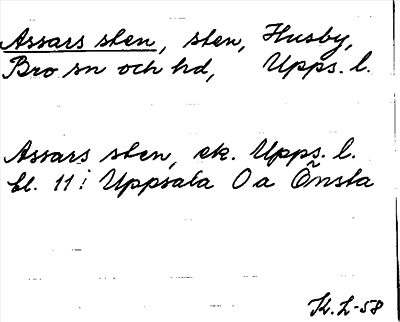 Assars sten, sten, Husby,
Bro sn och hd, Upps. l.
Assars sten, ek. Upps. l.
bl. 11: Uppsala Oa Önsta
K. L-58